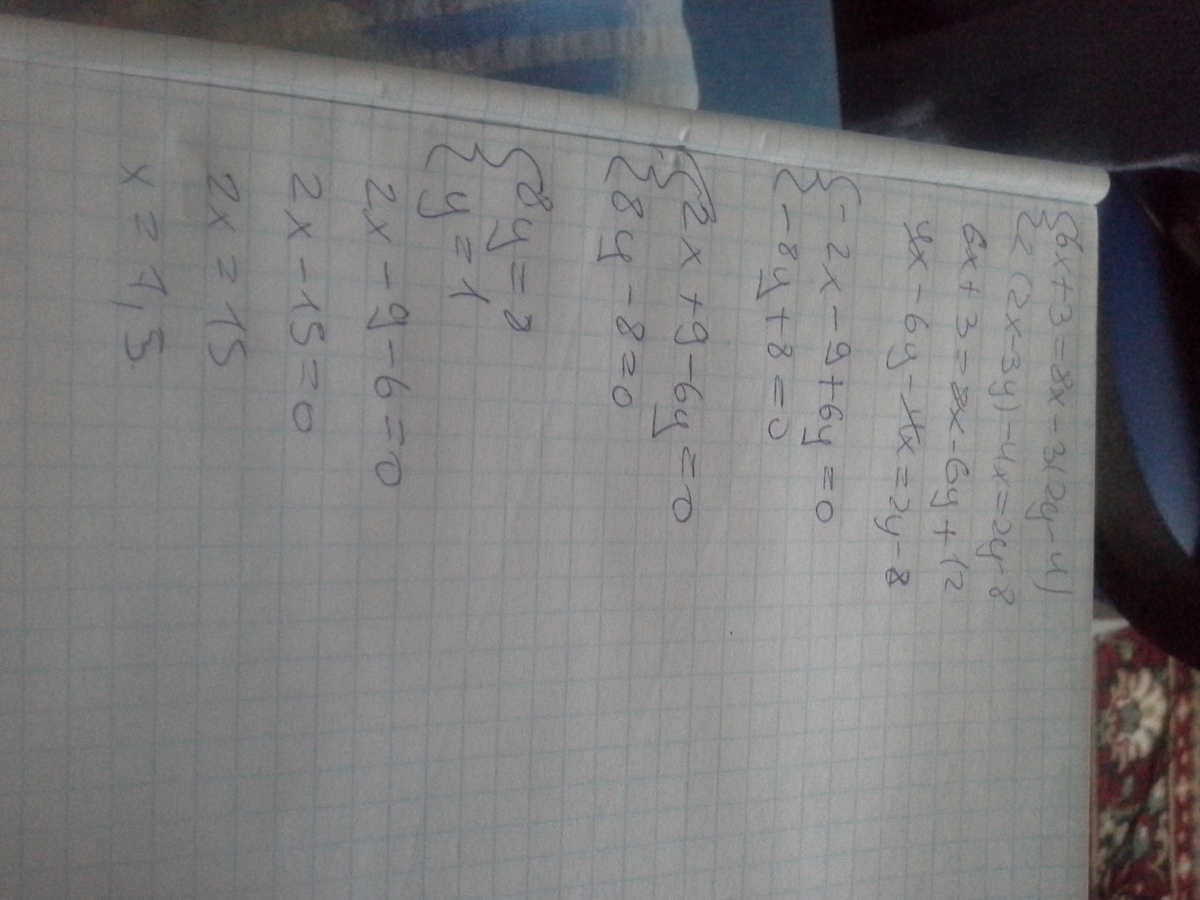 {6x+3=8x-3(2y-4)
{2(2x-3y)-4x=2y-8
6x+3=8x-6y+12
4x-6y-4x=2y-8
{-2x-9+6y=0
{-8y+8=0
{2x+9-6y=0
{8y-8=0
{8y=8
{y=1
2x-9-6=0
2x-15=0
2x=15
x=7,5